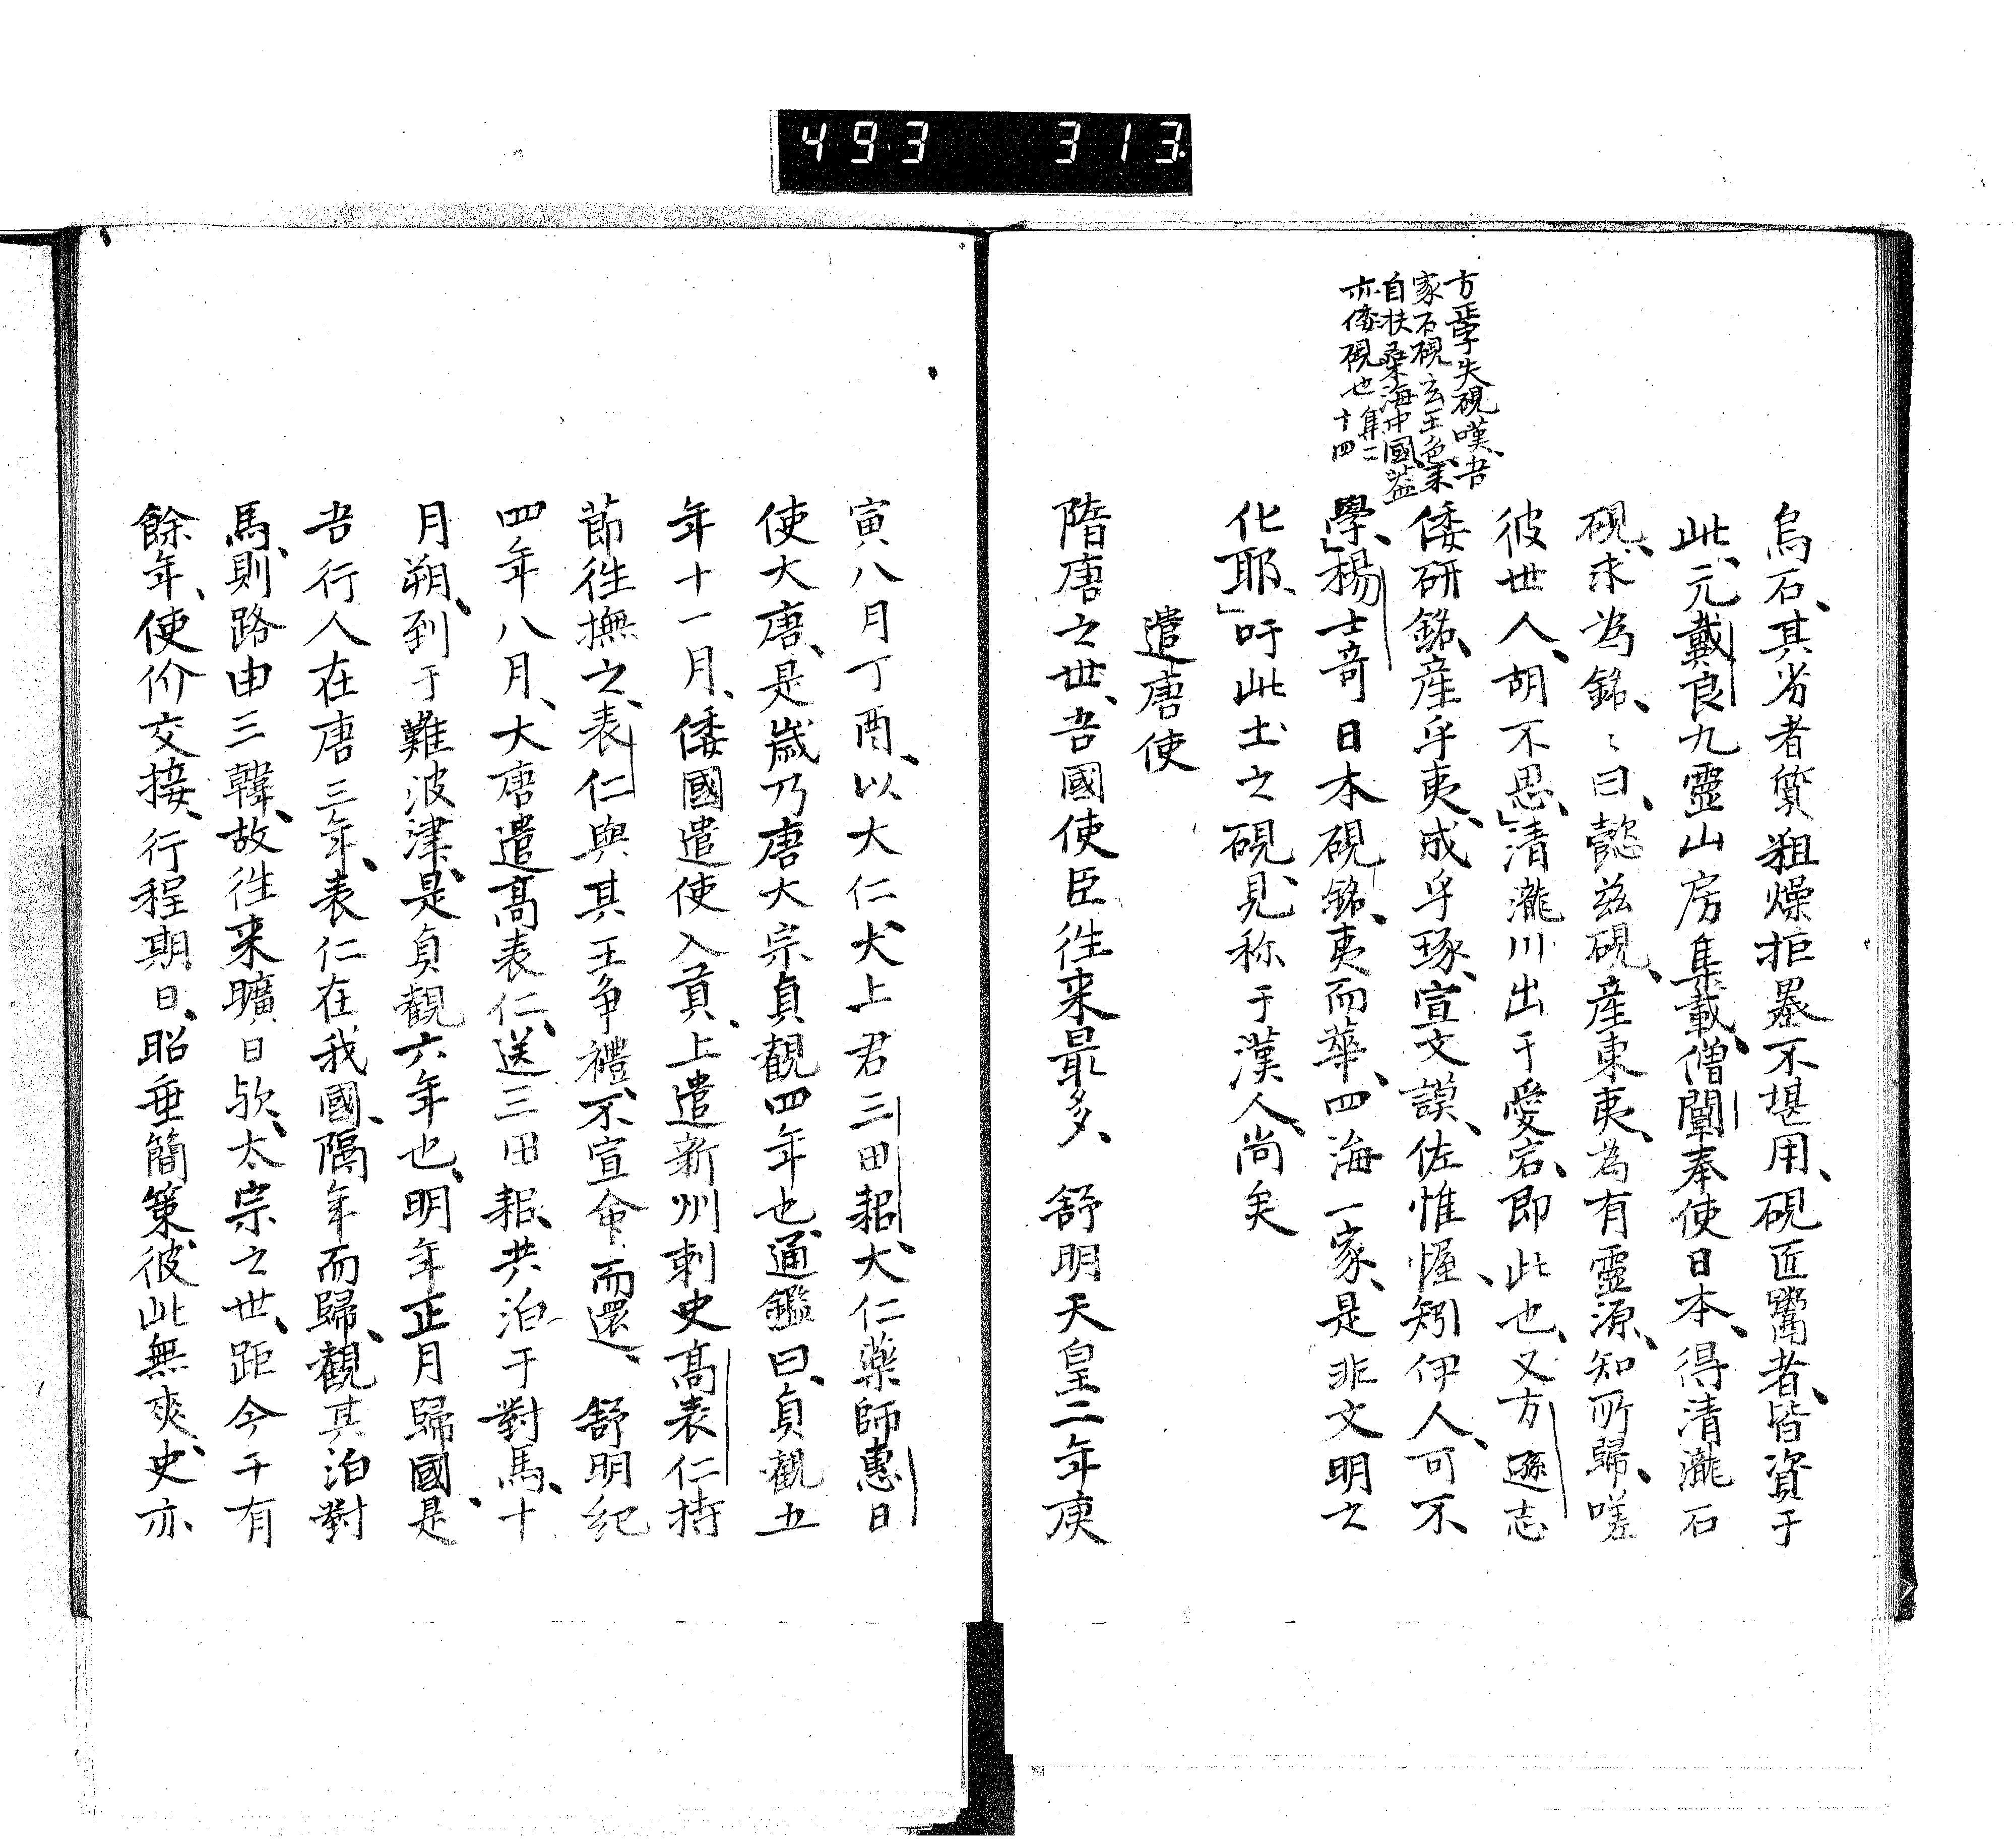 493 313
方正學失硯嘆、吾
家石硯玄玉色、来
自扶桑海中國、蓋
亦倭硯也 集二十四
烏石、其劣者質粗燥拒墨不堪用、硯匠鬻者、皆資于
此、元戴良九靈山房集載、僧闡奉使日本、得清瀧石
硯、求為銘、〻曰、懿茲硯、産東夷、為有靈源、知所歸、嗟
彼世人、胡不思」清瀧川出于愛宕、即此也、又方遜志
倭研銘、産乎夷、成乎琢、宣文謨、佐惟幄、矧伊人、可不
學」楊士奇日本硯銘、夷而華、四海一家、是非文明之
化耶、」吁此土之硯、見称于漢人尚矣
遣唐使
隋唐之世、吾國使臣往来最多、 舒明天皇二年庚
寅八月丁酉、以大仁犬上君三田耜、大仁薬師惠日
使大唐、是歳乃唐大宗貞觀四年也、通鑑曰、貞觀五
年十一月、倭國遣使入貢、上遣新州刺史高表仁持
節往撫之、表仁與其王争禮、不宣命而還、 舒明紀
四年八月、大唐遣高表仁、送三田耜、共泊于對馬、十
月朔、到于難波津、是貞觀六年也、明年正月歸國、是
吾行人在唐三年、表仁在我國、隔年而歸、觀其泊對
馬、則路由三韓、故往来曠日欤、太宗之世、距今千有
餘年、使价交接、行程期日、昭垂簡策、彼此無爽、史亦